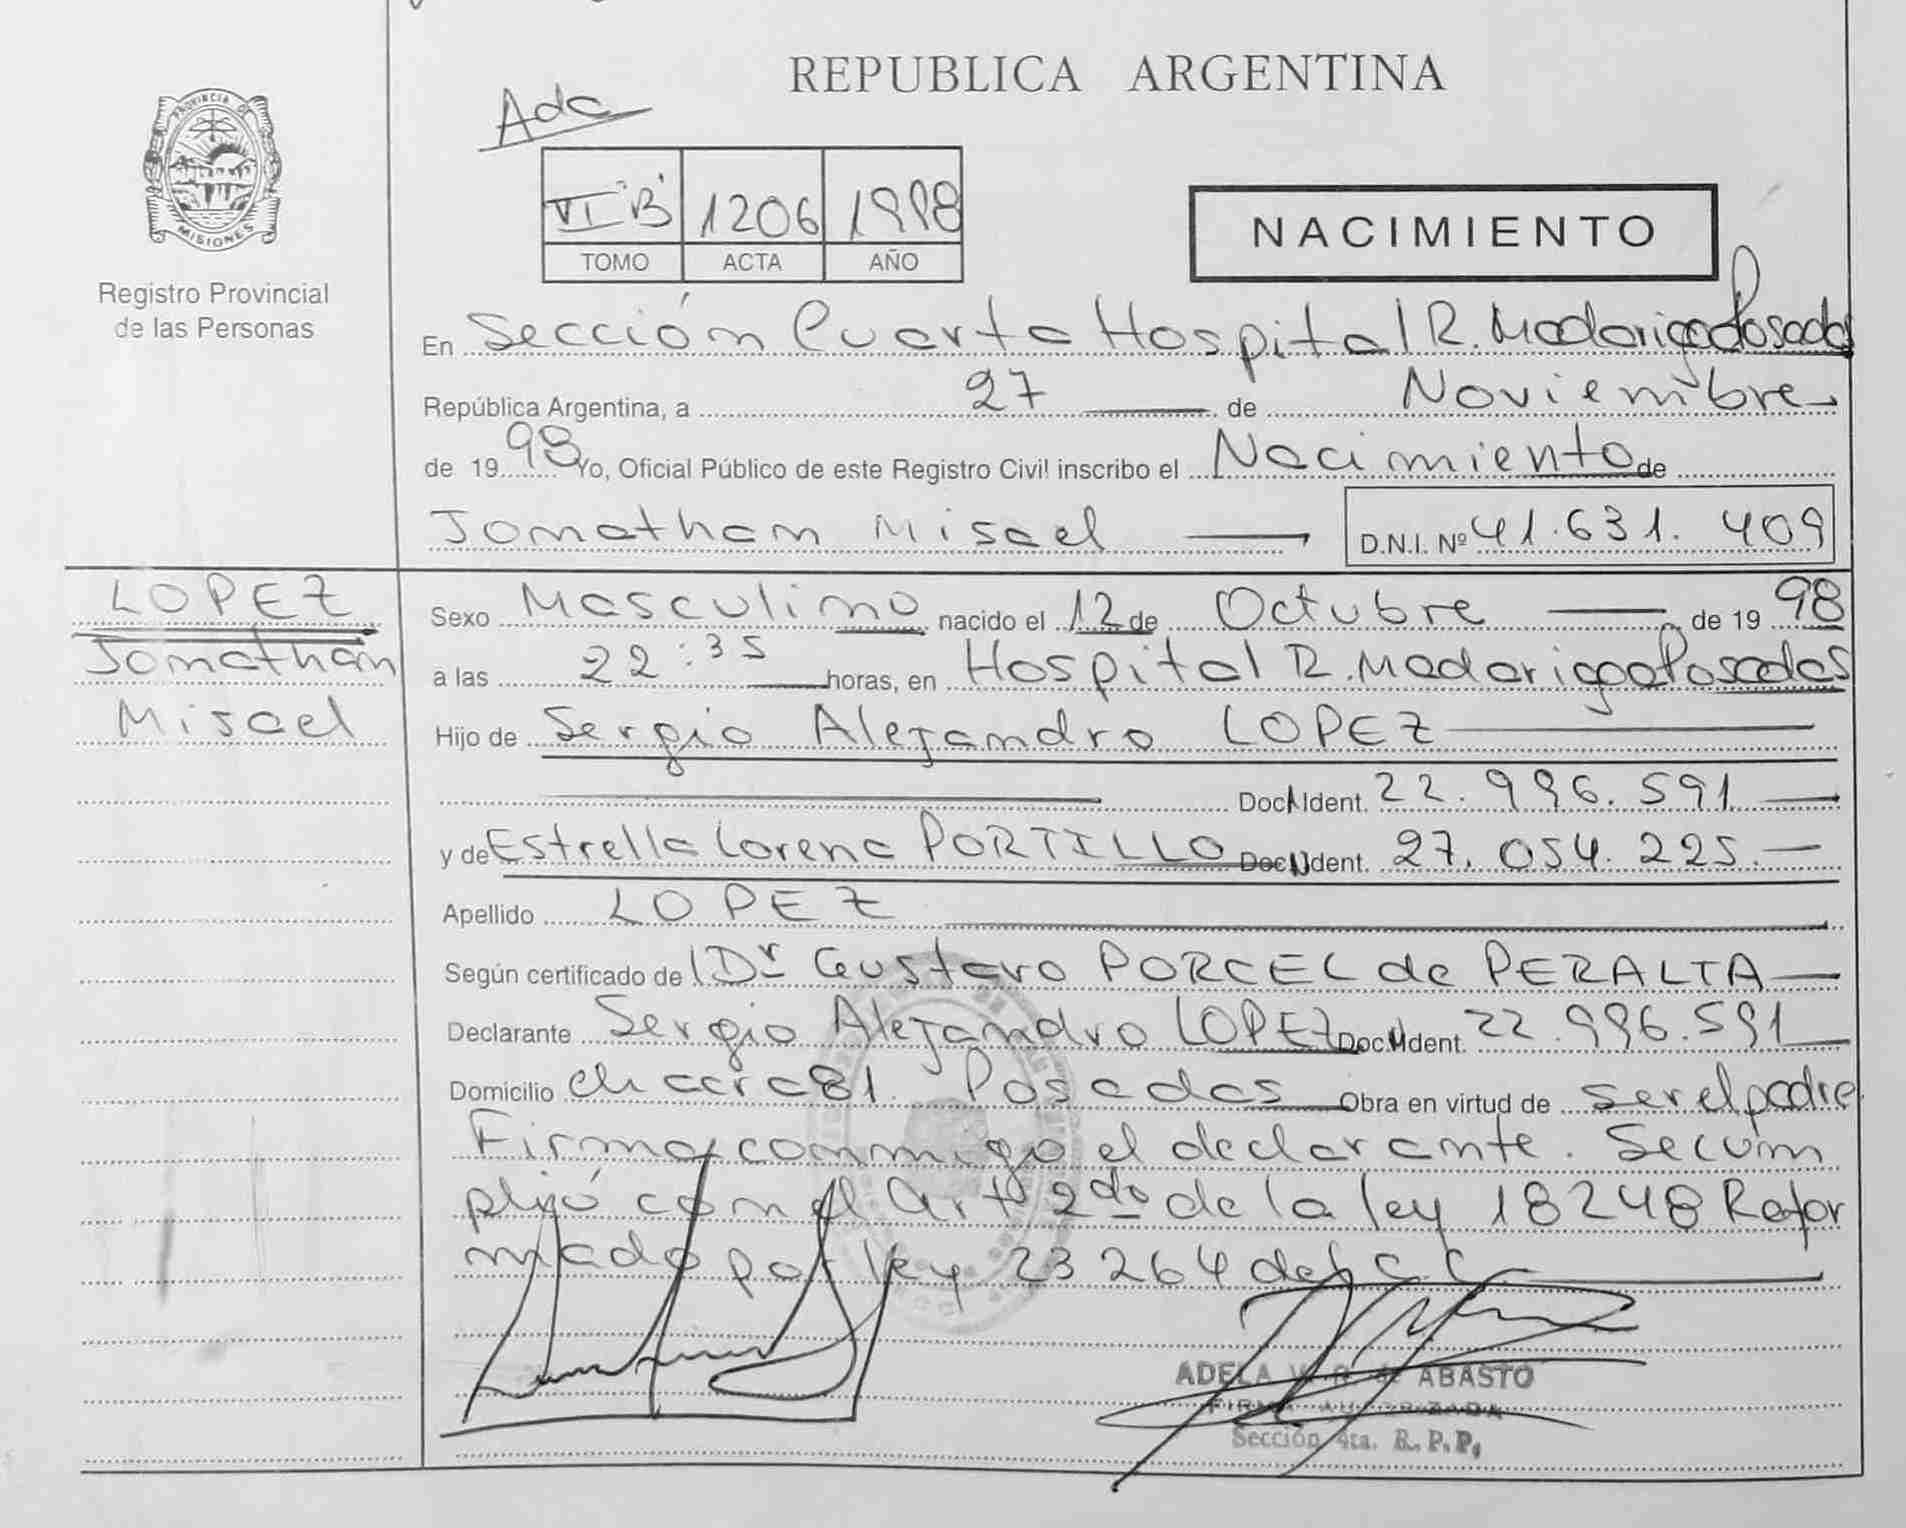 REPUBLICA ARGENTINA
Ada
PROVINCIA DE
MISIONES
Registro Provincial
de las Personas
VI "B" 1206 1998
TOMO ACTA AÑO
NACIMIENTO
En Sección Cuarta Hospital R. Madariaga Posadas
República Argentina, a 27 de Noviembre
de 1998 Yo, Oficial Público de este Registro Civil inscribo el Nacimiento de
Jonathan Misael D.N.I. Nº 41.631.409
LOPEZ
Jonathan
Misael
Sexo Masculino nacido el 12 de Octubre de 1998
a las 22:35 horas, en Hospital R. Madariaga Posadas
Hijo de Sergio Alejandro LOPEZ
Doc. Ident. 22.996.591
y de Estrella Lorena PORTILLO Doc. Ident. 27.054.225.
Apellido LOPEZ
Según certificado de Dr Gustavo PORCEL de PERALTA
Declarante Sergio Alejandro LOPEZ Doc. Ident. 22.996.591
Domicilio chacra 81. Posadas Obra en virtud de ser el padre
Firma conmigo el declarante. Se cum
plió con el Art 2do de la ley 18248 Refor
mado por ley 23264 del C.C.
ADELA de ABASTO
FIRMA AUTORIZADA
Sección 4ta. R.P.P.